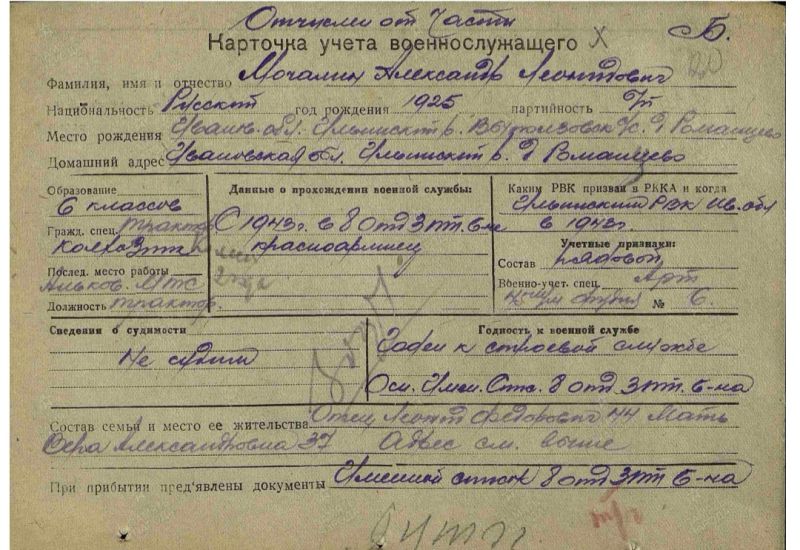 Отчислен от Части
Карточка учета военнослужащего X Б.
Фамилия, имя и отчество Мочалин Александр Леонтьевич
Национальность Русский год рождения 1925 партийность
Место рождения Иванов. обл. Ильинский р. Д Романцево
Домашний адрес Ивановская обл. Ильинский р. Д Романцево
Образование
6 классов
Гражд. спец. трактор
Колхозник
Послед. место работы
МТС
Должность трактор.
Данные о прохождении военной службы:
С 1943г. в 8 отд 3 пт. б-не
красноармиец
Каким РВК призван в РККА и когда
Ильинский РВК Ив. обл
в 1943г.
Учетные признаки:
Состав рядовой
Военно-учет. спец. Арт
№ 6.
Сведения о судимости
Не судим
Годность к военной службе
Годен к строевой службе
Осн. Имен. Спис. 8 отд 3 пт. б-на
Состав семьи и место ее жительства Отец Леонт Федорович 44 Мать
Вера Александровна 37 Адрес см. выше
При прибытии пред'явлены документы Именной список 8 отд 3 пт б-на